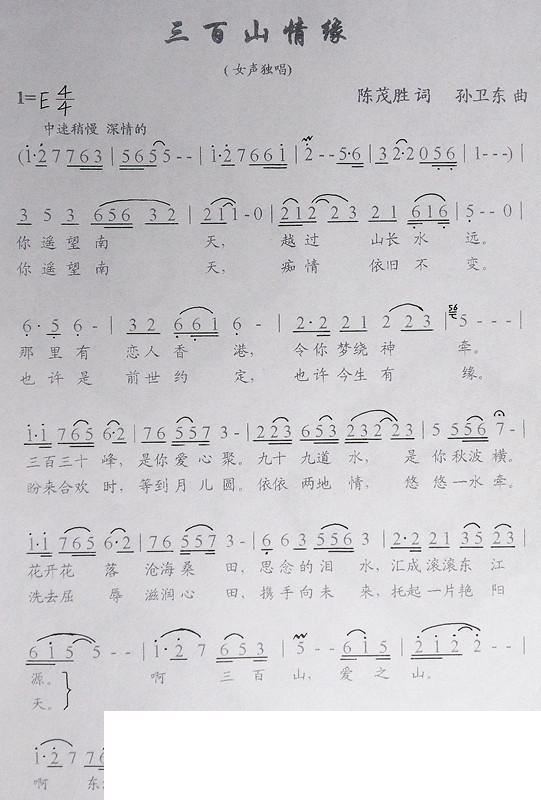 三百山情缘
(女声独唱)
1=E 4/4
陈茂胜 词 孙卫东 曲
中速稍慢 深情的
(i·2 7 7 6 3 | 5 6 5 5 - - | i·2 7 6 6 i | 2 - - 5·6 | 3 2·2 0 5 6 | 1 - - -) |
3 5 3 6 5 6 3 2 | 2 1 1 - 0 | 2 1 2 2 2 3 2 1 6 1 6 | 5 - - 0 |
你遥望南 天, 越过 山长水 远。
你遥望南 天, 痴情 依旧不 变。
6· 5 6 - | 3 2 6 6 1 6 - | 2·2 2 1 2 2 3 | 56 5 - - - |
那里有 恋人香 港, 令你梦绕神 牵。
也许是 前世约 定, 也许今生有 缘。
i·i 7 6 5 6·2 | 7 6 5 5 7 3 - | 2 2 3 6 5 3 2 3 2 2 3 | 5 5 5 6 7 - |
三百三十 峰, 是你爱心聚。九十九道水, 是你秋波横。
盼来合欢 时, 等到月儿圆。依依两地情, 悠悠一水牵。
i·i 7 6 5 6·2 | 7 6 5 5 7 3 - | 6 6 3 5 5 5 6 | 2·2 2 1 3 5 2 3 |
花开花 落 沧海桑 田, 思念的泪 水, 汇成滚滚东 江
洗去屈 辱 滋润心 田, 携手向未 来, 托起一片艳 阳
6 i 5 5 - - | i·2 7 6 5 3 | 5 - - 6 i 5 | 2 i 2 2 - - |
源。 啊 三百 山, 爱之 山。
天。
i·2 7 7 6
啊 东